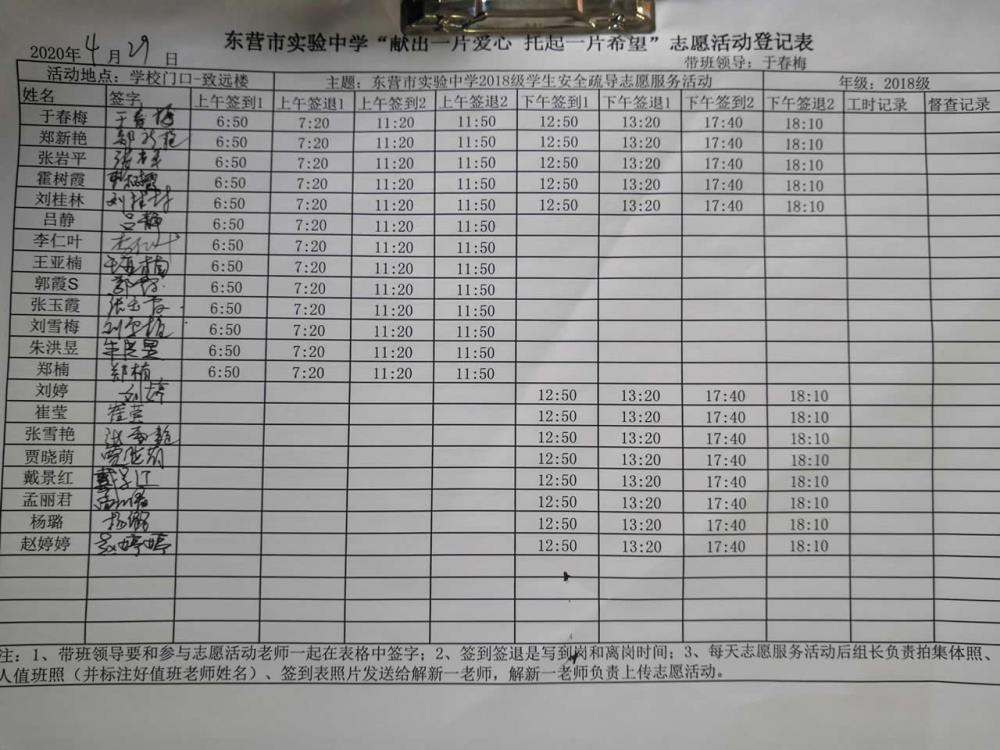 东营市实验中学“献出一片爱心 托起一片希望”志愿活动登记表
2020年4月29日 带班领导：于春梅
活动地点：学校门口-致远楼 主题：东营市实验中学2018级学生安全疏导志愿服务活动 年级：2018级
姓名 签字 上午签到1 上午签退1 上午签到2 上午签退2 下午签到1 下午签退1 下午签到2 下午签退2 工时记录 督查记录
于春梅 于春梅 6:50 7:20 11:20 11:50 12:50 13:20 17:40 18:10
郑新艳 郑新艳 6:50 7:20 11:20 11:50 12:50 13:20 17:40 18:10
张岩平 张岩平 6:50 7:20 11:20 11:50 12:50 13:20 17:40 18:10
霍树霞 霍树霞 6:50 7:20 11:20 11:50 12:50 13:20 17:40 18:10
刘桂林 刘桂林 6:50 7:20 11:20 11:50 12:50 13:20 17:40 18:10
吕静 吕静 6:50 7:20 11:20 11:50
李仁叶 李仁叶 6:50 7:20 11:20 11:50
王亚楠 王亚楠 6:50 7:20 11:20 11:50
郭霞S 郭霞 6:50 7:20 11:20 11:50
张玉霞 张玉霞 6:50 7:20 11:20 11:50
刘雪梅 刘雪梅 6:50 7:20 11:20 11:50
朱洪昱 朱洪昱 6:50 7:20 11:20 11:50
郑楠 郑楠 6:50 7:20 11:20 11:50
刘婷 刘婷 12:50 13:20 17:40 18:10
崔莹 崔莹 12:50 13:20 17:40 18:10
张雪艳 张雪艳 12:50 13:20 17:40 18:10
贾晓萌 贾晓萌 12:50 13:20 17:40 18:10
戴景红 戴景红 12:50 13:20 17:40 18:10
孟丽君 孟丽君 12:50 13:20 17:40 18:10
杨璐 杨璐 12:50 13:20 17:40 18:10
赵婷婷 赵婷婷 12:50 13:20 17:40 18:10
注：1、带班领导要和参与志愿活动老师一起在表格中签字；2、签到签退是写到岗和离岗时间；3、每天志愿服务活动后组长负责拍集体照、
人值班照（并标注好值班老师姓名）、签到表照片发送给解新一老师，解新一老师负责上传志愿活动。